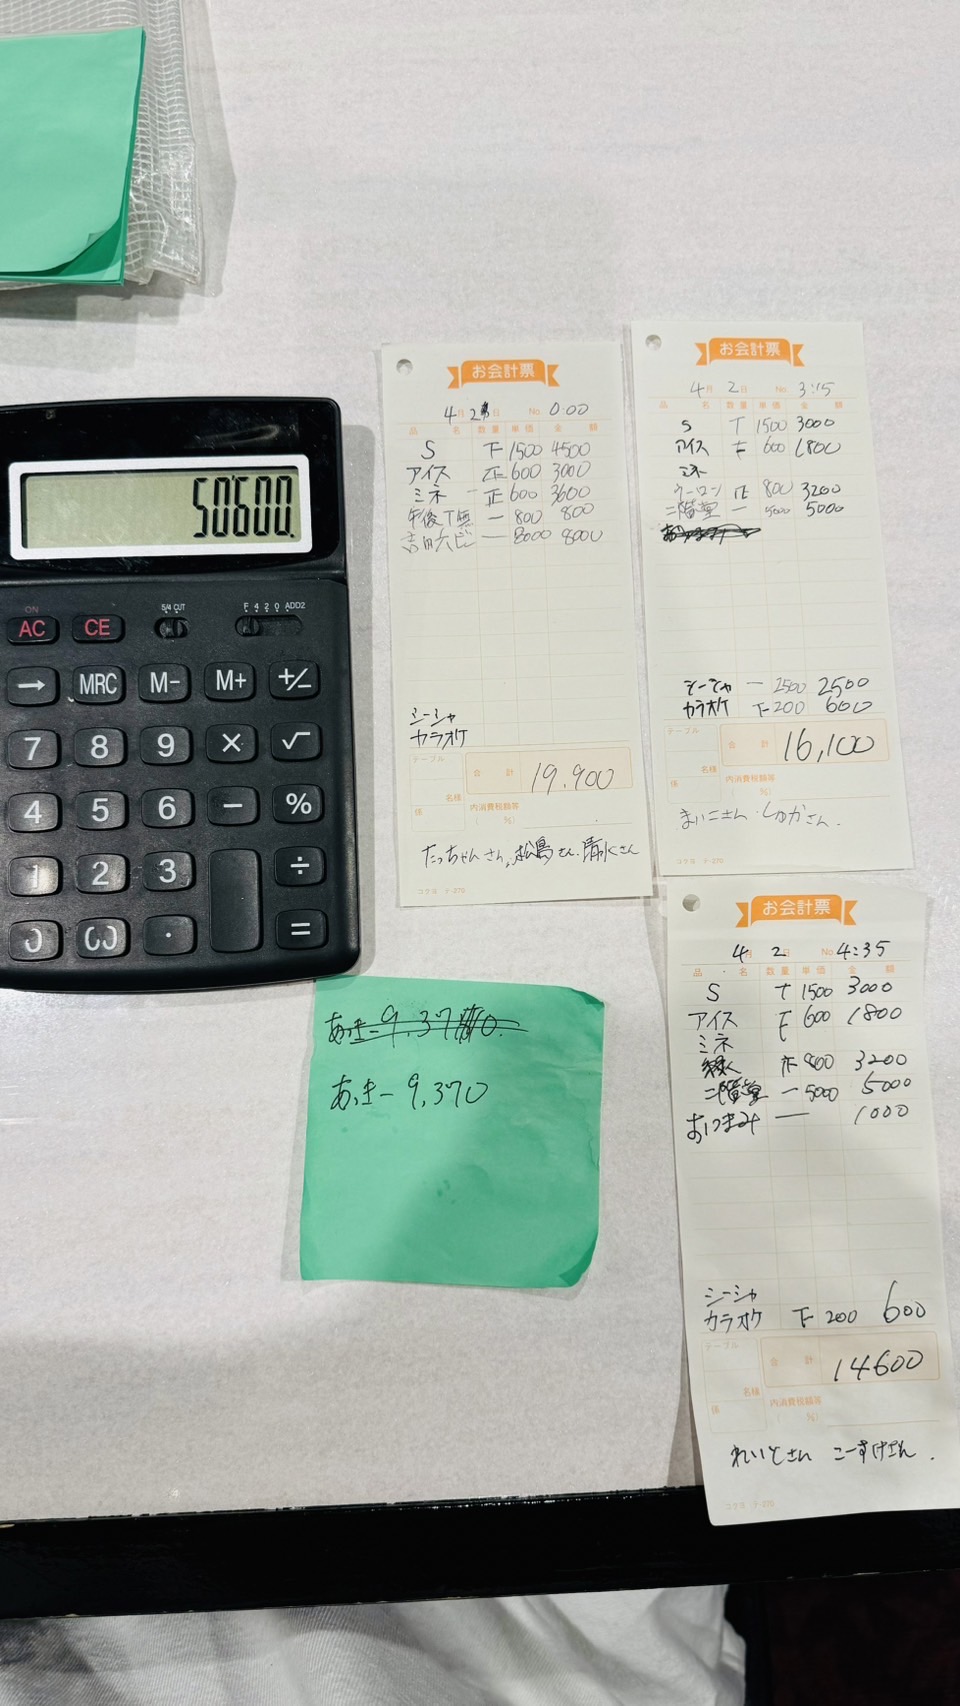 50'600.
ON
AC
CE
5/4 CUT
F 4 2 0 ADD2
→ MRC M- M+ +/-
7 8 9 × √
4 5 6 − %
1 2 3 ÷
0 00 · =
お会計票
4月 2日 No. 0:00
品 名 数量 単価 金 額
S 下 1500 4500
アイス 正 600 3000
ミネ 正一 600 3600
午後T無 一 800 800
吉四六ビン 一 8000 8000
シーシャ
カラオケ
テーブル
合 計 19.900
名様
係
内消費税額等
( %)
たっちゃんさん, 松島さん. 清水さん
コクヨ テ-270
お会計票
4月 2日 No. 3:15
品 名 数量 単価 金 額
S T 1500 3000
アイス 下 600 1800
ミネ
ウーロン 正 800 3200
二階堂 一 5000 5000
シーシャ 一 2500 2500
カラオケ 下 200 600
テーブル
合 計 16,100
名様
係
内消費税額等
( %)
まいこさん・しゅかさん.
コクヨ テ-270
お会計票
4月 2日 No. 4:35
品 名 数量 単価 金 額
S T 1500 3000
アイス 下 600 1800
ミネ
800 3200
二階堂 一 5000 5000
おつまみ 一 1000
シーシャ
カラオケ 下 200 600
テーブル
合 計 14600
名様
係
内消費税額等
( %)
れいとさん こーすけさん.
コクヨ テ-270
あっきー 9,370